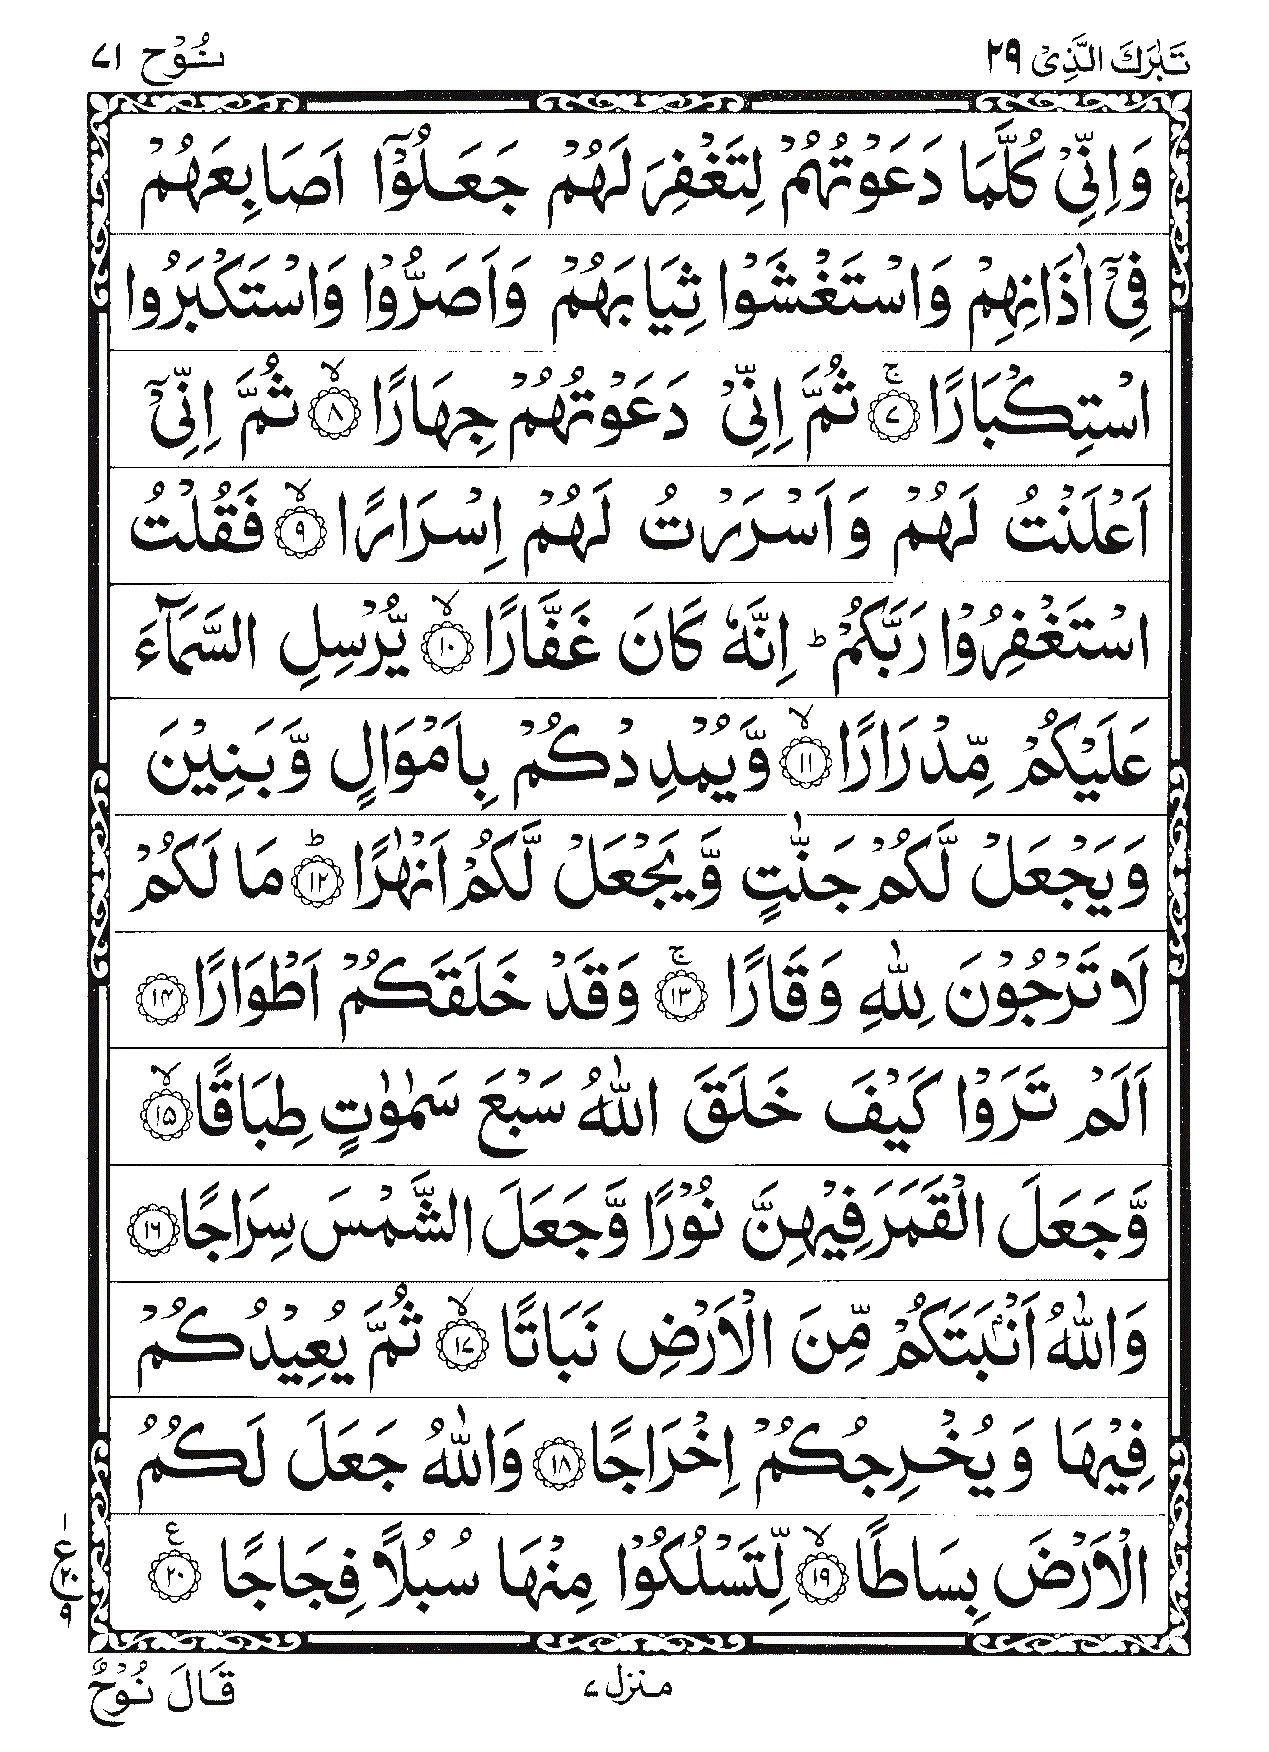 تَبٰرَكَ الَّذِیْ ۲۹
نُوْح ۷۱
وَاِنِّیْ كُلَّمَا دَعَوْتُهُمْ لِتَغْفِرَ لَهُمْ جَعَلُوْۤا اَصَابِعَهُمْ
فِیْۤ اٰذَانِهِمْ وَاسْتَغْشَوْا ثِیَابَهُمْ وَاَصَرُّوْا وَاسْتَكْبَرُوا
اسْتِكْبَارًا ۚ۷ ثُمَّ اِنِّیْ دَعَوْتُهُمْ جِهَارًا ۙ۸ ثُمَّ اِنِّیْۤ
اَعْلَنْتُ لَهُمْ وَ اَسْرَرْتُ لَهُمْ اِسْرَارًا ۙ۹ فَقُلْتُ
اسْتَغْفِرُوْا رَبَّكُمْ ؕ اِنَّهٗ كَانَ غَفَّارًا ۙ۱۰ یُّرْسِلِ السَّمَآءَ
عَلَیْكُمْ مِّدْرَارًا ۙ۱۱ وَّیُمْدِدْكُمْ بِاَمْوَالٍ وَّبَنِیْنَ
وَیَجْعَلْ لَّكُمْ جَنّٰتٍ وَّیَجْعَلْ لَّكُمْ اَنْهٰرًا ؕ۱۲ مَا لَكُمْ
لَا تَرْجُوْنَ لِلّٰهِ وَقَارًا ۚ۱۳ وَقَدْ خَلَقَكُمْ اَطْوَارًا ۱۴
اَلَمْ تَرَوْا كَیْفَ خَلَقَ اللّٰهُ سَبْعَ سَمٰوٰتٍ طِبَاقًا ۙ۱۵
وَّجَعَلَ الْقَمَرَ فِیْهِنَّ نُوْرًا وَّجَعَلَ الشَّمْسَ سِرَاجًا ۱۶
وَاللّٰهُ اَنْۢبَتَكُمْ مِّنَ الْاَرْضِ نَبَاتًا ۙ۱۷ ثُمَّ یُعِیْدُكُمْ
فِیْهَا وَ یُخْرِجُكُمْ اِخْرَاجًا ۱۸ وَاللّٰهُ جَعَلَ لَكُمُ
الْاَرْضَ بِسَاطًا ۙ۱۹ لِّتَسْلُكُوْا مِنْهَا سُبُلًا فِجَاجًا ۲۰ ع
۱
ع ۲۰
۹
منزل ۷
قَالَ نُوْحٌ